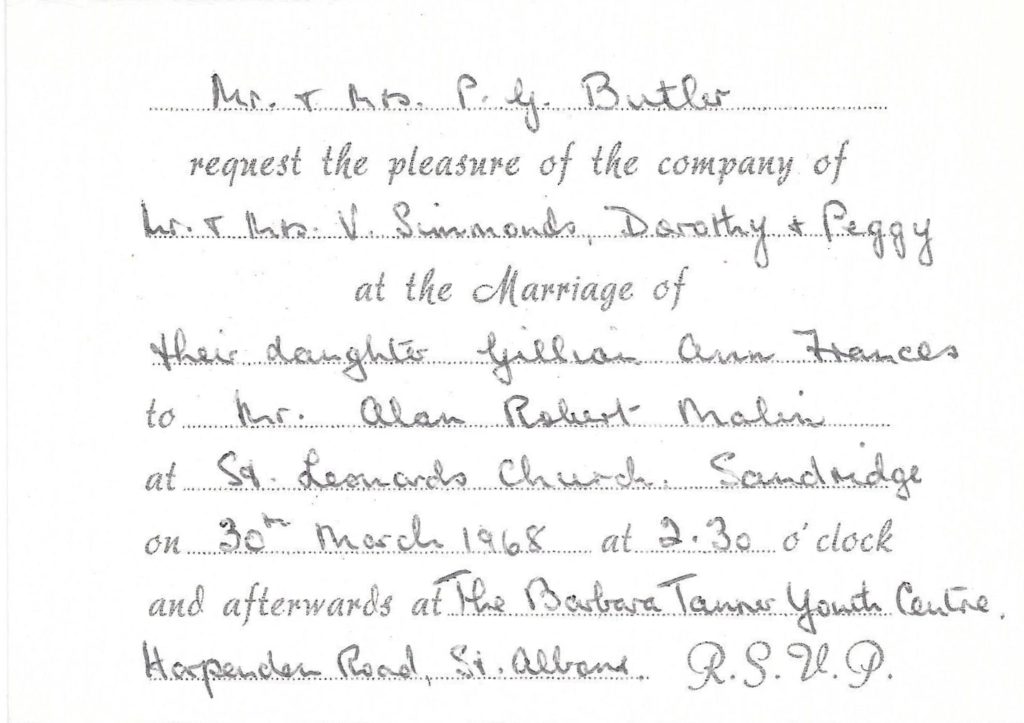 Mr. & Mrs. P. G. Butler
request the pleasure of the company of
Mr. & Mrs. V. Simmonds, Dorothy & Peggy
at the Marriage of
their daughter Gillian Ann Frances
to Mr. Alan Robert Malin
at St. Leonards Church. Sandridge
on 30th March 1968 at 2.30 o'clock
and afterwards at The Barbara Tanner Youth Centre.
Harpenden Road, St. Albans. R.S.V.P.